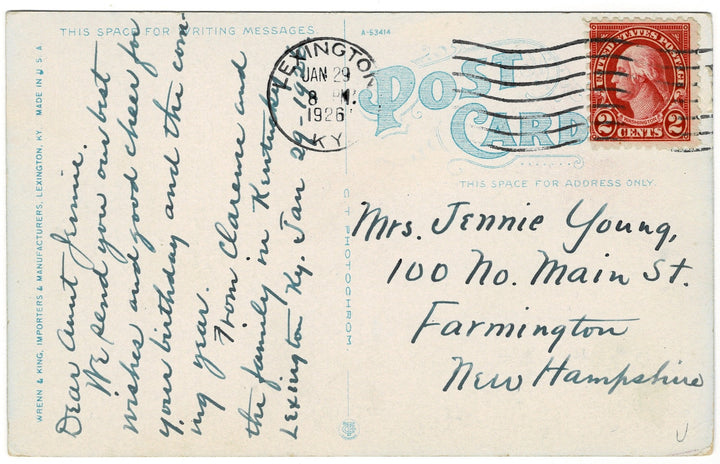 THIS SPACE FOR WRITING MESSAGES
A-53414
POST
CARD
THIS SPACE FOR ADDRESS ONLY.
LEXINGTON
JAN 29
8 M.
1926
KY.
UNITED STATES POSTAGE
WASHINGTON
2 CENTS 2
WRENN & KING, IMPORTERS & MANUFACTURERS, LEXINGTON, KY. MADE IN U S A
Dear Aunt Jennie.
We send you our best
wishes and good cheer for
your birthday and the com-
ing year.
From Clarence and
the family in Kentucky
Lexington Ky. Jan 29-1926
C T PHOTOCHROM
Mrs. Jennie Young,
100 No. Main St.
Farmington
New Hampshire